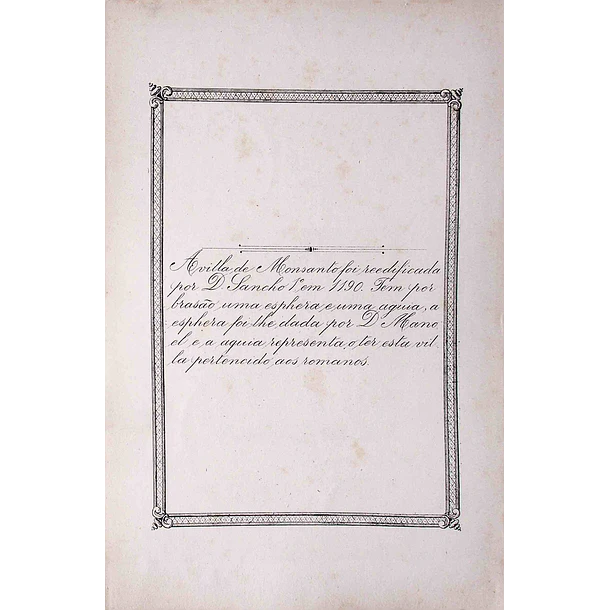 A villa de Monsanto foi reedificada
por D. Sancho 1º em 1190. Tem por
brasão uma esphera, e uma aguia, a
esphera foi-lhe dada por D. Mano
el, e, a aguia representa, o ter esta vil
la pertencido aos romanos.